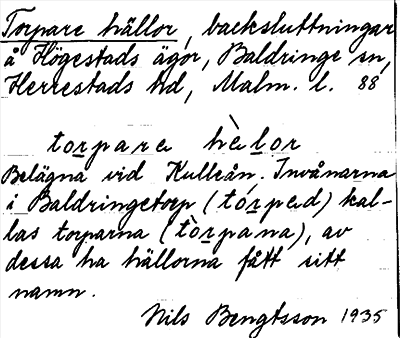 Torpare hällor, backsluttningar
å Högestads ägor, Baldringe sn,
Herrestads hd, Malm. l. 88
torpara hèlor
Belägna vid Kulleån. Invånarna
i Baldringetorp (tórpad) kal-
las torparna (tòrpana), av
dessa ha hällorna fått sitt
namn.
Nils Bengtsson 1935